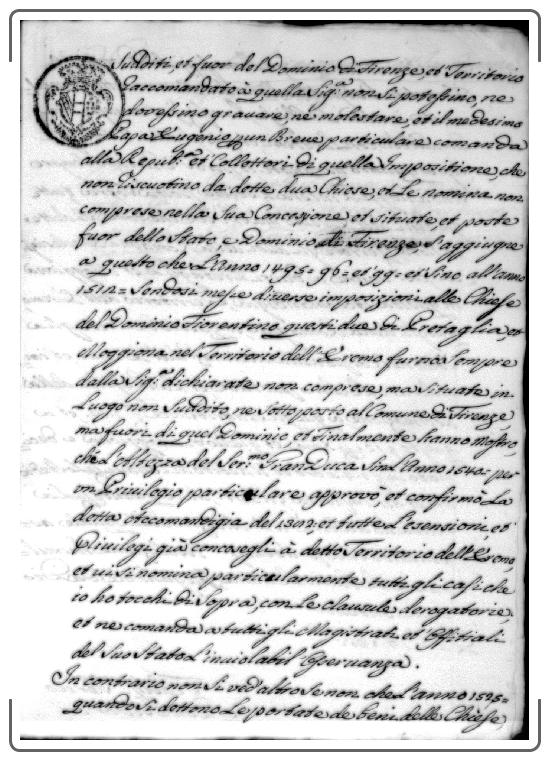 Sudditi, et fuor del Dominio di Firenze, et Territorio
Raccomandato à quella Sig.ª non si potessino, ne
dovessino gravare, ne molestare, et il medesimo
Papa Eugenio p un Breve particulare comanda
alla Repub.ª et Collettori di quella Impositione, che
non riscuotino da dette dua Chiese, et Le nomina non
comprese nella Sua Concessione et situate, et poste
fuor dello Stato, e Dominio di Firenze, S'aggiugne
a questo che L'Anno 1495= 96= et 99= et Sino all'anno
1512= Sendosi messe diverse imposizioni alle Chiese
del Dominio Fiorentino questi due di Pretaglia, et
Moggiona nel Territorio dell'Eremo furono Sempre
dalla Sig.ª dichiarate non comprese, ma Situate in
Luogo non Suddito, ne Sottoposto al Comune di Firenze,
ma fuori di quel Dominio, et Finalmente hanno mostro,
che L'Altezza del Ser.mo Gran Duca Sin L'Anno 1540= per
un Privilegio particulare approvò, et confirmò La
detta accomandigia del 1382, et tutte L'esensioni, et
Privilegi già concessegli à detto Territorio dell'Eremo,
et vi Si nomina particularmente tutti gli casi che
io ho tocchi di Sopra, con Le clausule derogatorie,
et ne comanda a tutti gli Magistrati, et Offitiali
del Suo Stato L'inviolabil Osservanza.
In contrario non Si ved'altro Se non che L'anno 1535=
quando Si dettono Le portate de beni delle Chiese,